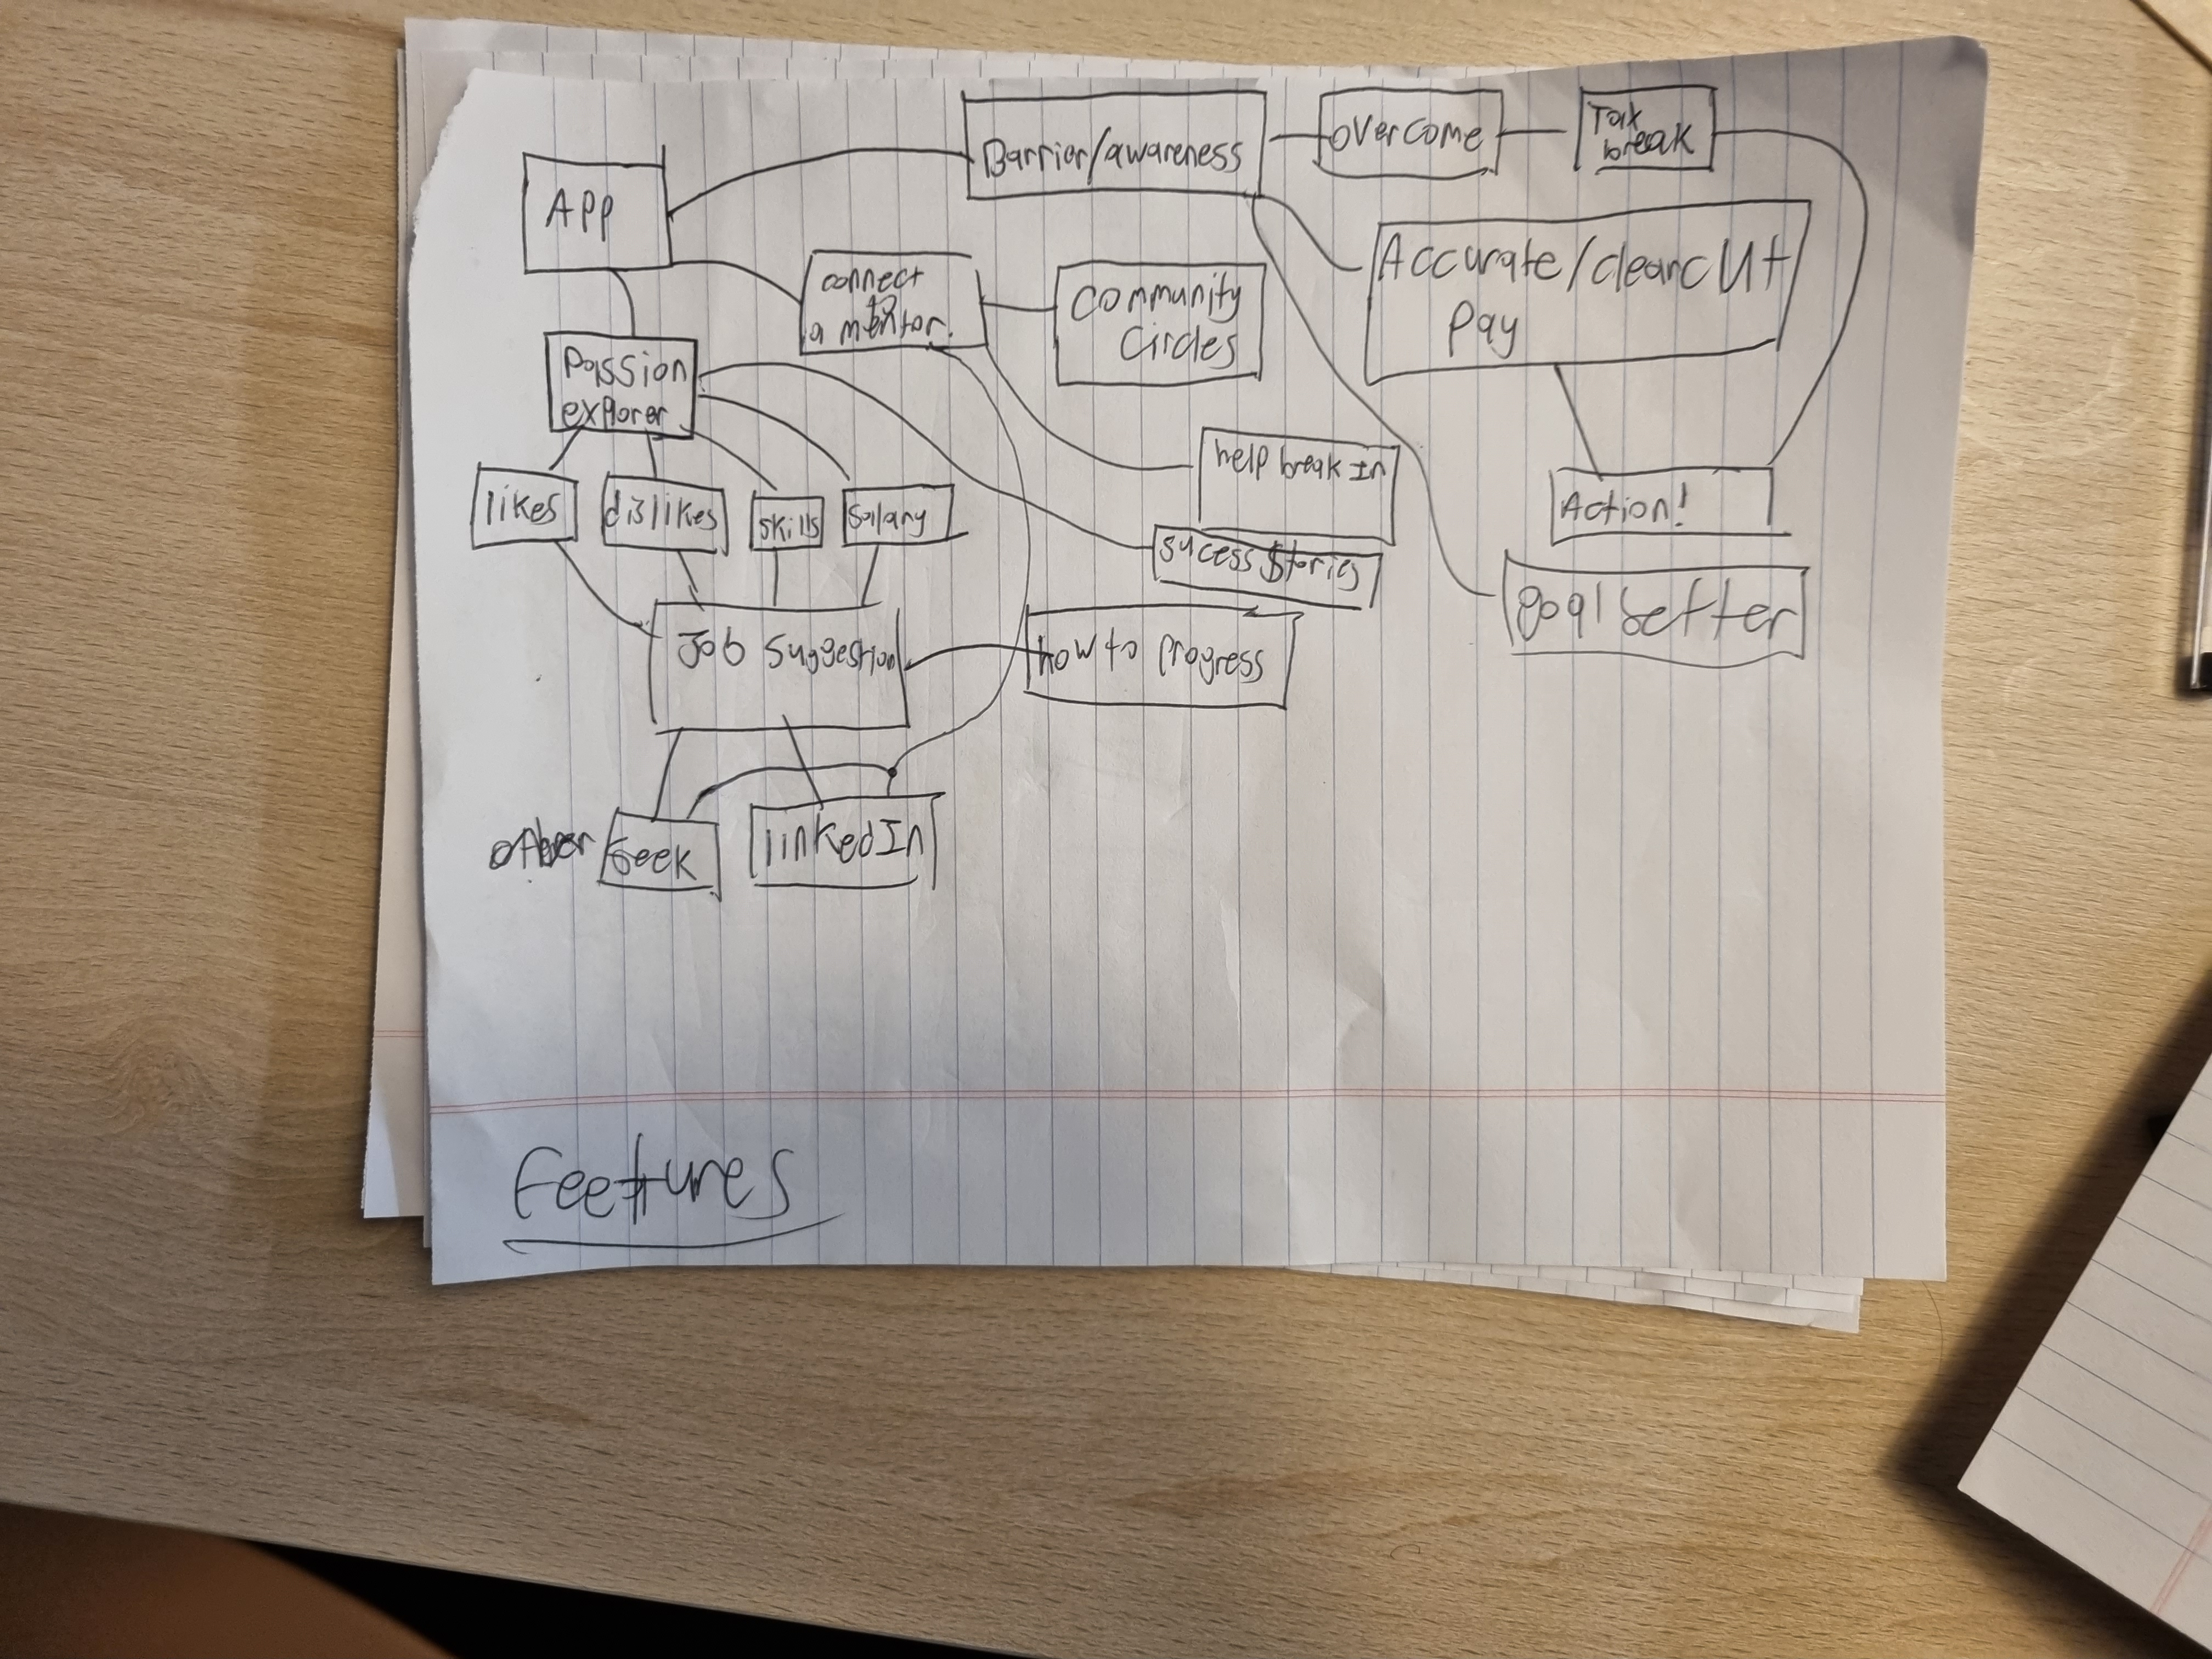 App
Barrier/awareness
overcome
Tax
break
connect
to
a mentor.
Community
Circles
Accurate/clearcut
Pay
Passion
explorer
help break In
likes
dislikes
skills
salary
Action!
sucess stories
goal setter
Job suggestion
how to progress
other
Seek
linkedIn
Feetures